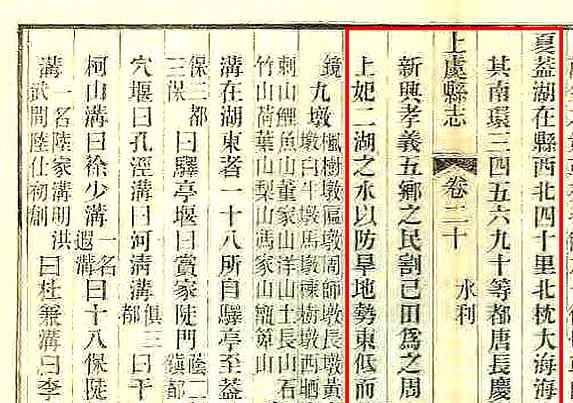 夏葢湖在縣西北四十里北枕大海海
其南環三四五六九十等都唐長慶
上虞縣志 卷二十 水利
新興孝義五鄉之民割己田爲之周
上妃二湖之水以防旱地勢東低而
鏡九墩 楓樹墩區墩周師墩長墩黃
墩白牛墩馬墩楝樹墩西
刺山鯉魚山董家山洋山土長山石
竹山荷葉山梨山馮家山箬箭山
溝在湖東者一十八所自驛亭至葢
保二都曰驛亭堰曰賞家陡門
三保
穴堰曰孔涇溝曰河清溝俱三都曰干
柯山溝曰徐少溝一名遐溝曰十八保陡
溝一名陸家溝明洪武間陸仕初創曰杜兼溝曰李